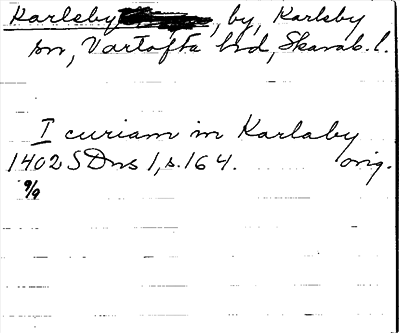 Karleby, by, Karleby
sn, Vartofta hd, Skarab. l.
I curiam in Karlaby
1402 SDns 1, s. 164. orig.
9/9